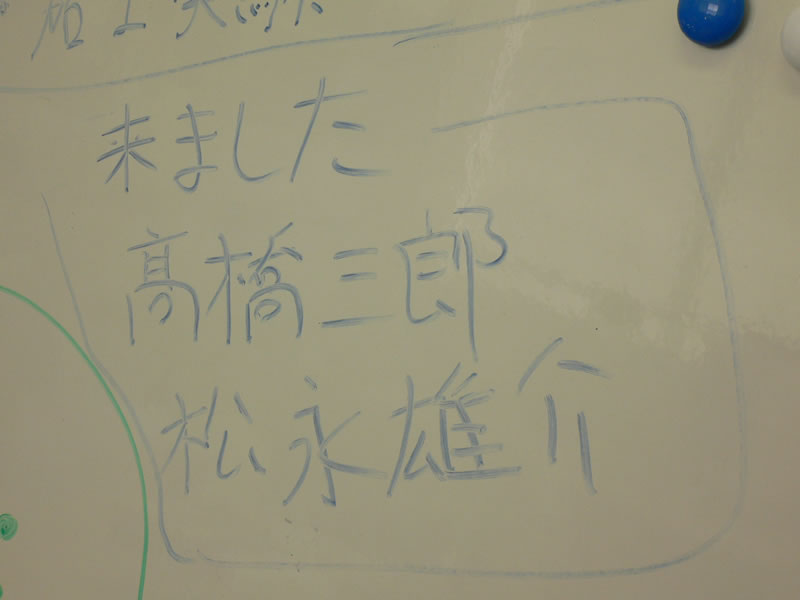 来ました
髙橋三郎
松永雄介